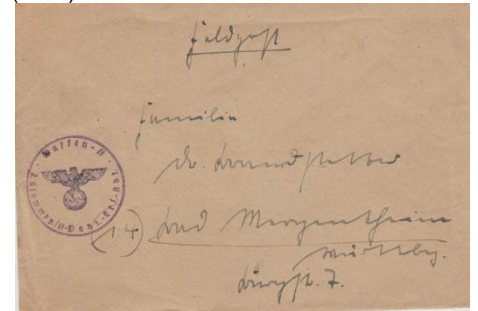 Feldpost
Familie
Dr.
(14) Bad Mergentheim
Württbg.
Burgstr. 7.
Waffen-SS